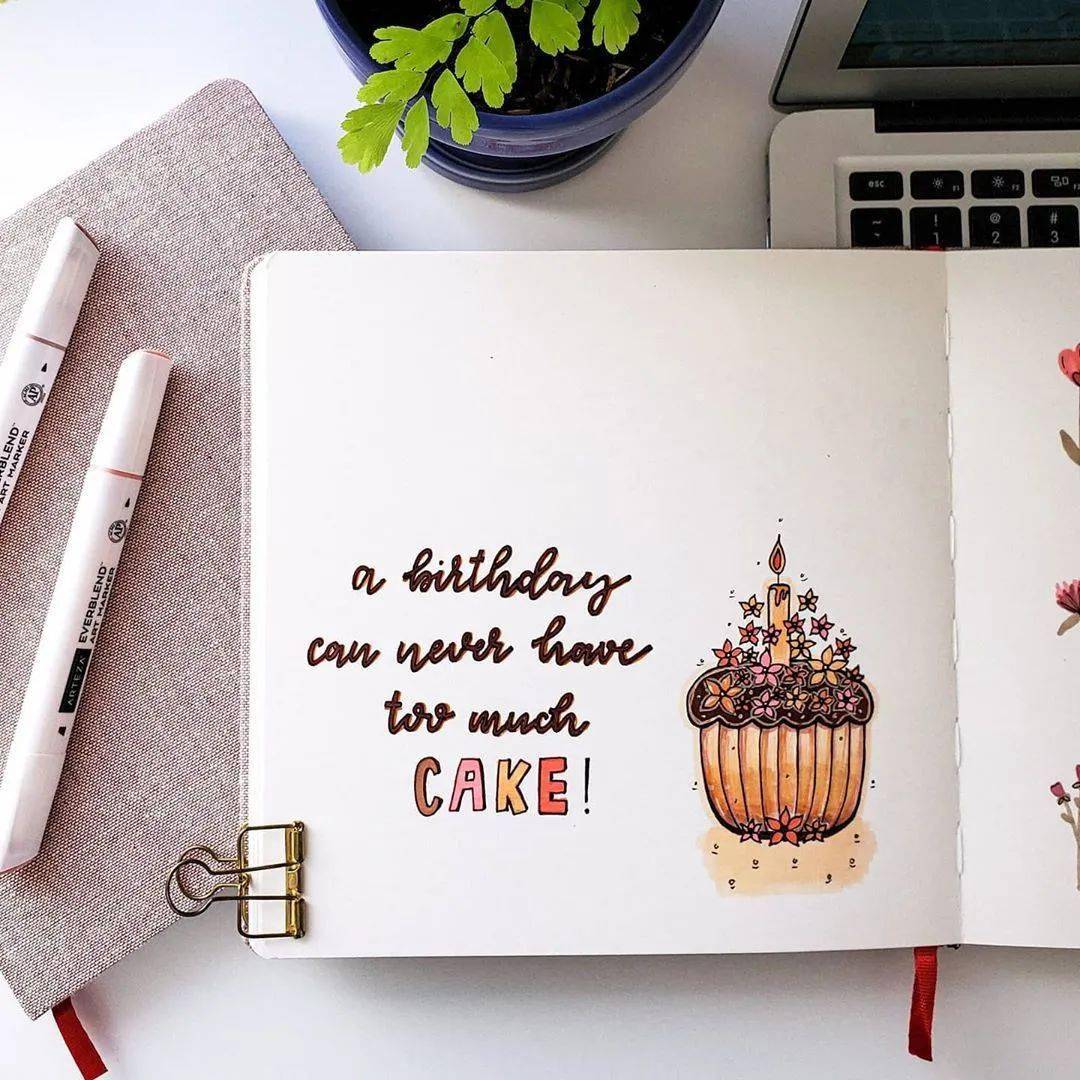 esc
F1
F2
~
!
1
@
2
#
3
EVERBLEND
ART MARKER
ARTEZA EVERBLEND™
ART MARKER
AP
a birthday
can never have
too much
CAKE!